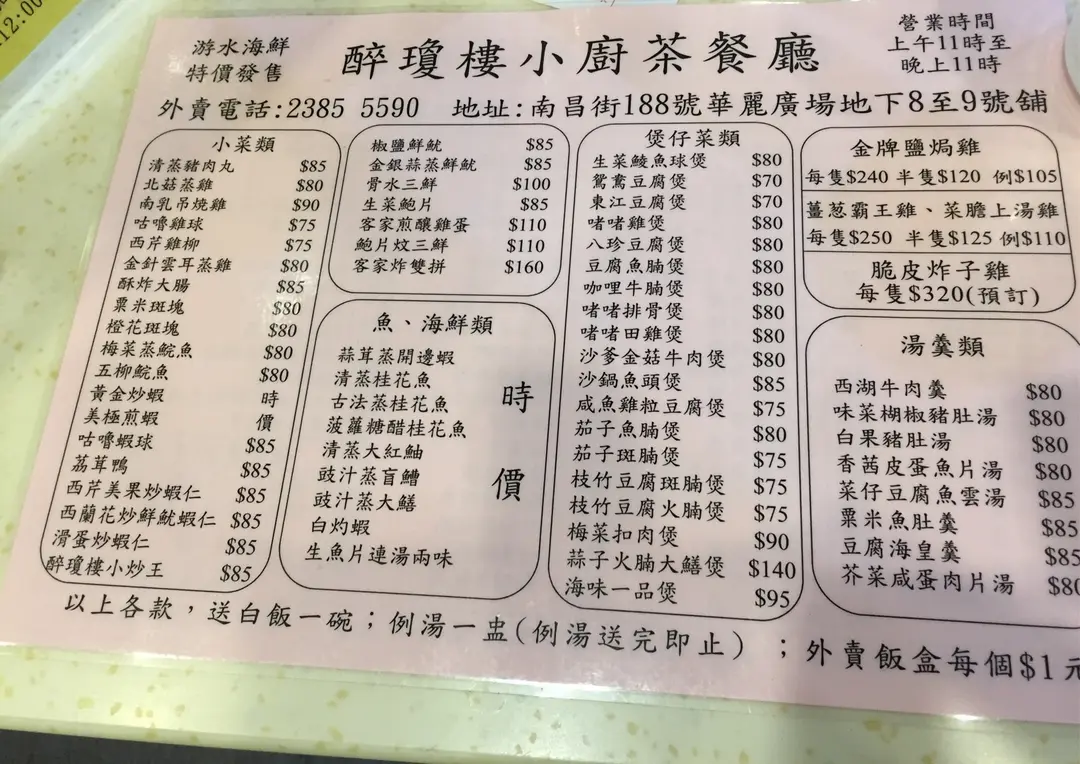 12:00
游水海鮮
特價發售
醉瓊樓小廚茶餐廳
營業時間
上午11時至
晚上11時
外賣電話:2385 5590 地址:南昌街188號華麗廣場地下8至9號舖
小菜類
清蒸豬肉丸 $85
北菇蒸雞 $80
南乳吊燒雞 $90
咕嚕雞球 $75
西芹雞柳 $75
金針雲耳蒸雞 $80
酥炸大腸 $85
粟米斑塊 $80
橙花斑塊 $80
梅菜蒸鯇魚 $80
五柳鯇魚 $80
黃金炒蝦 時
美極煎蝦 價
咕嚕蝦球 $85
荔茸鴨 $85
西芹美果炒蝦仁 $85
西蘭花炒鮮魷蝦仁 $85
滑蛋炒蝦仁 $85
醉瓊樓小炒王 $85
椒鹽鮮魷 $85
金銀蒜蒸鮮魷 $85
骨水三鮮 $100
生菜鮑片 $85
客家煎釀雞蛋 $110
鮑片炆三鮮 $110
客家炸雙拼 $160
魚、海鮮類
蒜茸蒸開邊蝦
清蒸桂花魚
古法蒸桂花魚
菠蘿糖醋桂花魚
清蒸大紅鮋
豉汁蒸盲鰽
豉汁蒸大鱔
白灼蝦
生魚片連湯兩味
時
價
煲仔菜類
生菜鯪魚球煲 $80
鴛鴦豆腐煲 $70
東江豆腐煲 $70
啫啫雞煲 $80
八珍豆腐煲 $80
豆腐魚腩煲 $80
咖哩牛腩煲 $80
啫啫排骨煲 $80
啫啫田雞煲 $80
沙爹金菇牛肉煲 $80
沙鍋魚頭煲 $85
咸魚雞粒豆腐煲 $75
茄子魚腩煲 $80
茄子斑腩煲 $75
枝竹豆腐斑腩煲 $75
枝竹豆腐火腩煲 $75
梅菜扣肉煲 $90
蒜子火腩大鱔煲 $140
海味一品煲 $95
金牌鹽焗雞
每隻$240 半隻$120 例$105
薑蔥霸王雞、菜膽上湯雞
每隻$250 半隻$125 例$110
脆皮炸子雞
每隻$320(預訂)
湯羹類
西湖牛肉羹 $80
味菜椒胡豬肚湯 $80
白果豬肚湯 $80
香茜皮蛋魚片湯 $80
菜仔豆腐魚雲湯 $85
粟米魚肚羹 $85
豆腐海皇羹 $85
芥菜咸蛋肉片湯 $80
以上各款，送白飯一碗；例湯一盅(例湯送完即止)；外賣飯盒每個$1元